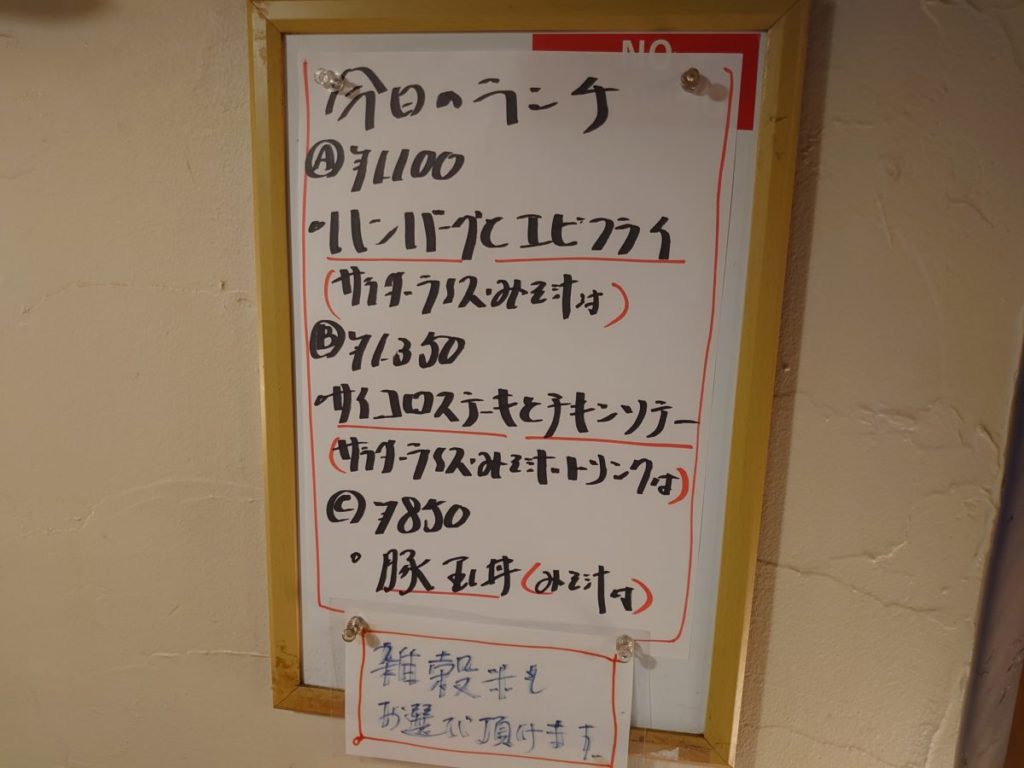 NO
今日のランチ
Ⓐ ¥1,100
・ハンバーグとエビフライ
(サラダ・ライス・みそ汁付)
Ⓑ ¥1,350
・サイコロステーキとチキンソテー
(サラダ・ライス・みそ汁・ドリンク付)
Ⓒ ¥850
・豚玉丼(みそ汁付)
雑穀米も
お選び頂けます